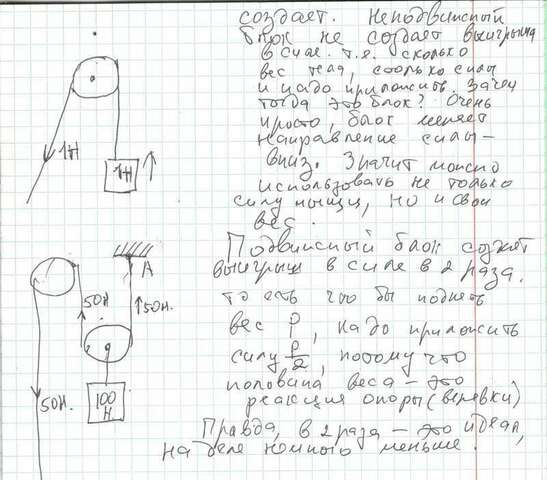 создает. Неподвижный
блок не создает выигрыша
в силе. т.е. сколько
вес тела, столько силы
и надо приложить. Зачем
тогда это блок? Очень
просто, блок меняет
направление силы –
вниз. Значит можно
использовать не только
силу мышц, но и свой
вес.
1Н
1Н
Подвижный блок создает
выигрыш в силе в 2 раза.
то есть что бы поднять
вес P, надо приложить
силу P/2, потому что
половина веса – это
реакция опоры (веревки)
Правда, в 2 раза – это идеал,
на деле немного меньше.
A
50Н.
50Н.
50Н.
100
Н